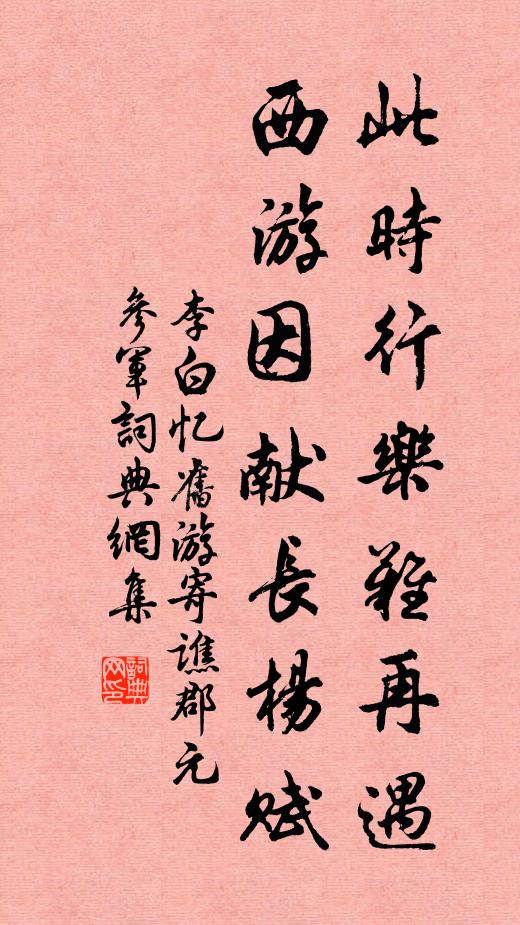 此時行樂難再遇
西游因献長楊賦
李白忆舊游寄譙郡元
參軍詞典網集
詞典
网印